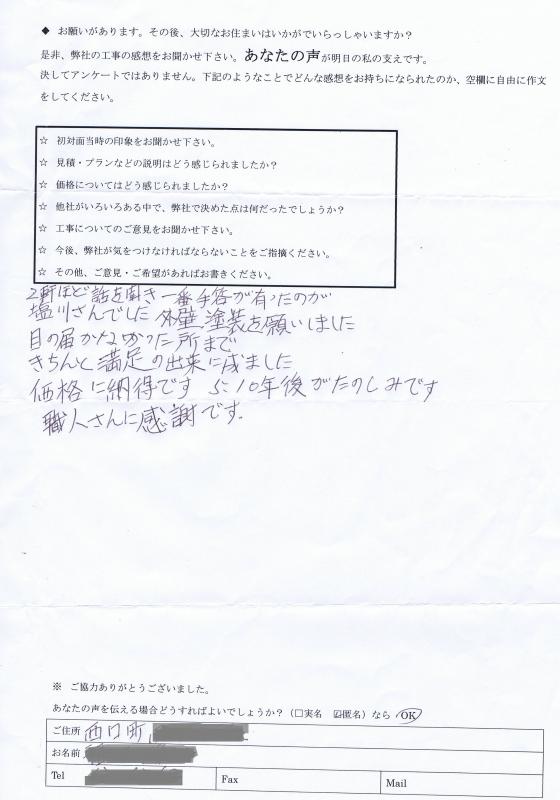 ◆ お願いがあります。その後、大切なお住まいはいかがでいらっしゃいますか？
是非、弊社の工事の感想をお聞かせ下さい。あなたの声が明日の私の支えです。
決してアンケートではありません。下記のようなことでどんな感想をお持ちになられたのか、空欄に自由に作文
をしてください。
☆ 初対面当時の印象をお聞かせ下さい。
☆ 見積・プランなどの説明はどう感じられましたか？
☆ 価格についてはどう感じられましたか？
☆ 他社がいろいろある中で、弊社で決めた点は何だったでしょうか？
☆ 工事についてのご意見をお聞かせ下さい。
☆ 今後、弊社が気をつけなければならないことをご指摘ください。
☆ その他、ご意見・ご希望があればお書きください。
2軒ほど話を聞き一番手答が有ったのが
塩川さんでした 外壁塗装を願いしました
目の届かなかった所まで
きちんと満足の出来に成ました
価格に納得です 10年後がたのしみです
職人さんに感謝です.
※ ご協力ありがとうございました。
あなたの声を伝える場合どうすればよいでしょうか？（□実名 ☑匿名）なら OK
ご住所 西口町
お名前
Tel Fax Mail